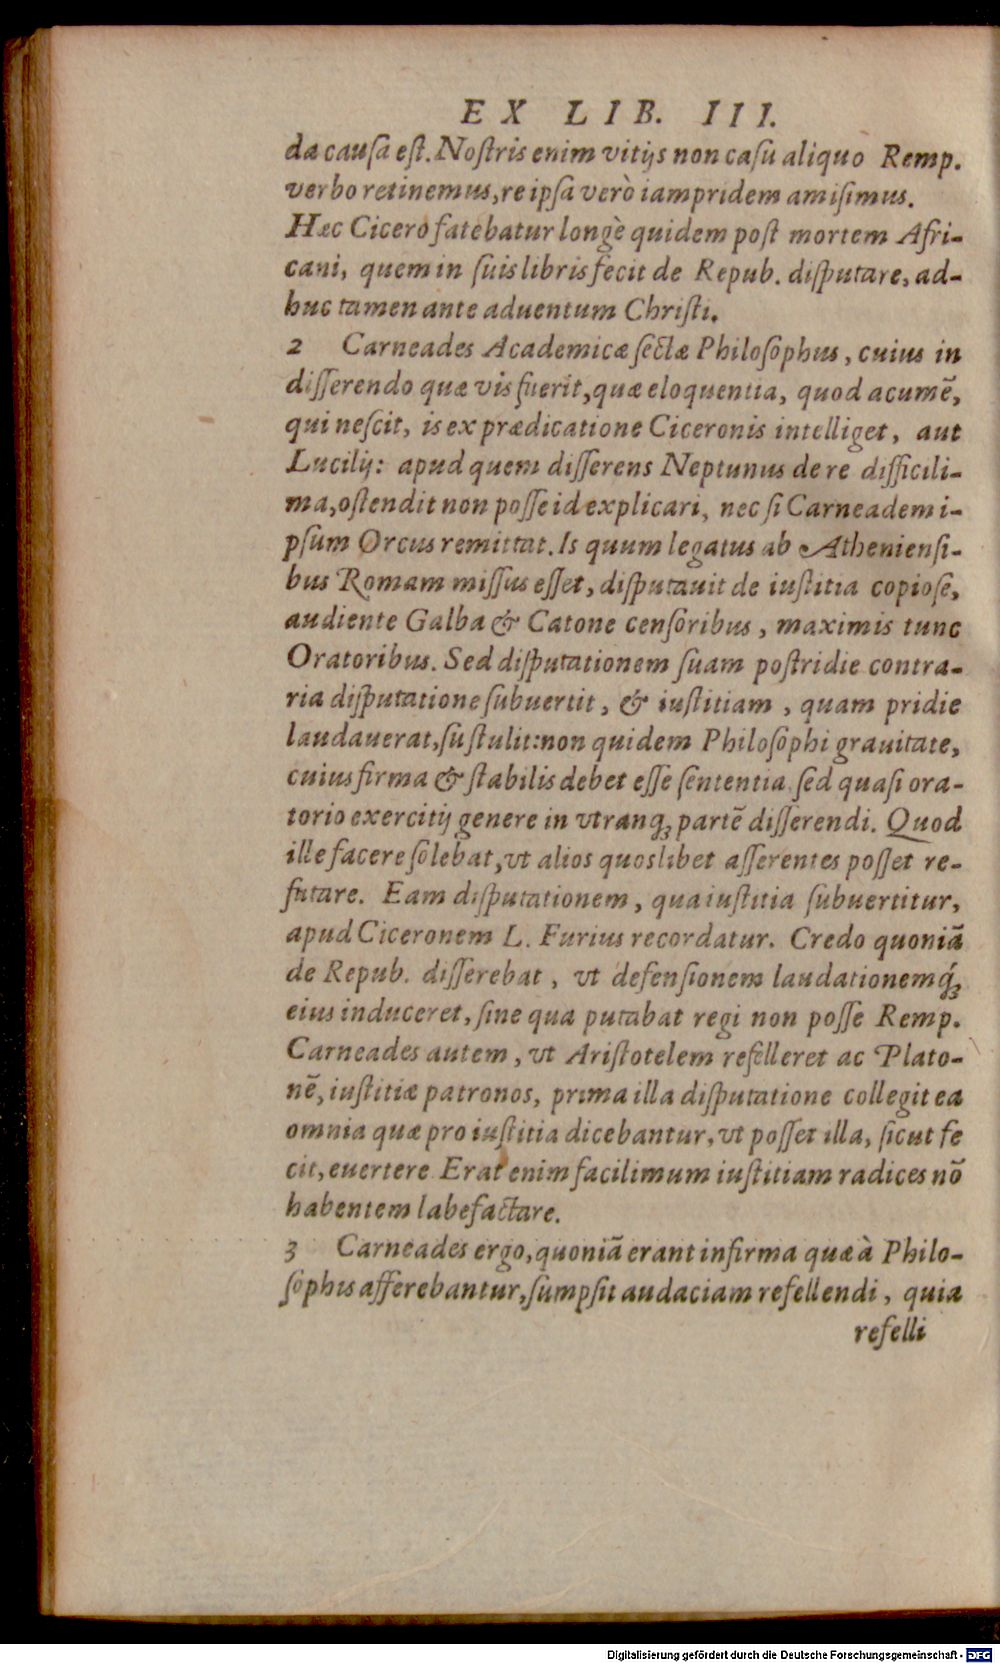 EX LIB. III.
da causa est. Nostris enim vitijs non casu aliquo Remp.
verbo retinemus, re ipsa verò iampridem amisimus.
Hæc Cicero fatebatur longè quidem post mortem Afri-
cani, quem in suis libris fecit de Repub. disputare, ad-
huc tamen ante aduentum Christi.
2 Carneades Academicæ sectæ Philosophus, cuius in
disserendo quæ vis fuerit, quæ eloquentia, quod acumẽ,
qui nescit, is ex prædicatione Ciceronis intelliget, aut
Lucilij: apud quem disserens Neptunus de re difficili-
ma, ostendit non posse id explicari, nec si Carneadem i-
psum Orcus remittat. Is quum legatus ab Atheniensi-
bus Romam missus esset, disputauit de iustitia copiose,
audiente Galba & Catone censoribus, maximis tunc
Oratoribus. Sed disputationem suam postridie contra-
ria disputatione subuertit, & iustitiam, quam pridie
laudauerat, sustulit: non quidem Philosophi grauitate,
cuius firma & stabilis debet esse sententia sed quasi ora-
torio exercitij genere in vtranq; partẽ disserendi. Quod
ille facere solebat, vt alios quoslibet asserentes posset re-
futare. Eam disputationem, qua iustitia subuertitur,
apud Ciceronem L. Furius recordatur. Credo quoniã
de Repub. disserebat, vt defensionem laudationemq́;
eius induceret, sine qua putabat regi non posse Remp.
Carneades autem, vt Aristotelem refelleret ac Plato-
nẽ, iustitiæ patronos, prima illa disputatione collegit ea
omnia quæ pro iustitia dicebantur, vt posset illa, sicut fe
cit, euertere Erat enim facilimum iustitiam radices nõ
habentem labefactare.
3 Carneades ergo, quoniã erant infirma quæ à Philo-
sophis afferebantur, sumpsit audaciam refellendi, quia
refelli
Digitalisierung gefördert durch die Deutsche Forschungsgemeinschaft - DFG